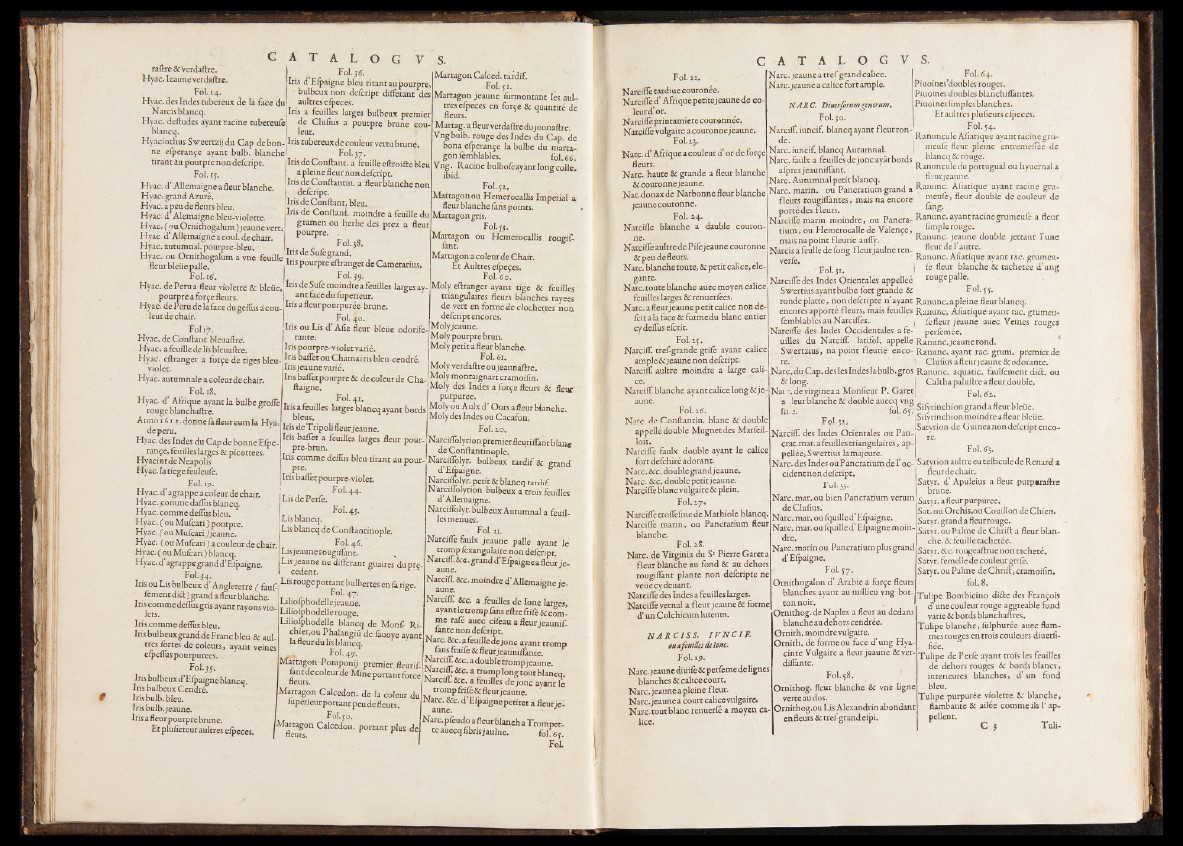 CATALOGVS.
raſtre & verdaſtre.
Hyac. Icaume verdaſtre.
Fol. 14.
Hyac. des Indes tubereux de la face du
Narcis blancq.
Hyac. deſtudes ayant racine tubereuſe
blancq.
Hyacinthus Sweertzij du Cap de bon-
ne eſperançe ayant bulb. blanche
tirant au pourpre non deſcript.
Fol. 15.
Hyac. d'Allemaigne a fleur blanche.
Hyac. grand Azuré.
Hyac. a peu de fleurs bleu.
Hyac. d'Alemaigne bleu-violette.
Hyac. (ou Ornithogalum) jeaune vert.
Hyac. d'Allemaigne a coul. de chair.
Hyac. autumnal. pourpre-bleu.
Hyac. ou Ornithogalum a vne feuille
fleur bleüe palle.
Fol. 16.
Hyac. de Peru a fleur violette & bleüe,
pourpre a forçe fleurs.
Hyac. de Peru de la face du geſſus a cou-
leur de chair.
Fol 17.
Hyac. de Conſtant bleuaſtre.
Hyac. a feuille de lis bleuaſtre.
Hyac. eſtranger a forçe de tiges bleu-
violet.
Hyac. autumnale a coleur de chair.
Fol. 18.
Hyac. d'Afrique ayant la bulbe groſſe
rouge blanchaſtre.
Anno 1612. donne ſa fleur cum la Hya.
de peru.
Hyac. des Indes du Cap de bonne Eſpe-
rançe, feuilles larges & picottees.
Hyacint de Neapolis
Hyac. la tiege feuleuſe.
Fol. 19.
Hyac. d'agrappe a coleur de chair.
Hyac. comme daſſus blancq.
Hyac. comme deſſus bleu.
Hyac. (ou Muſcari) pourpre.
Hyac. (ou Muſcari) jeaune.
Hyac. (ou Muſcari) a couleur de chair.
Hyac. (ou Muſcari) blancq.
Hyac. d'agrappe grand d'Eſpaigne.
Fol. 34.
Iris ou Lis bulbeux d'Angleterre (fauſ-
ſement dict) grand a fleur blanche.
Iris comme deſſus gris ayant rayons vio-
lets.
Iris comme deſſus bleu.
Iris bulbeux grand de Franc bleu & aul-
tres ſortes de coleurs, ayant veines
eſpeſſus pourpurees.
Fol. 35.
Iris bulbeux d'Eſpaigne blancq.
Iris bulbeux Cendré.
Iris bulb. bleu.
Iris bulb. jeaune.
Iris a fleur pourpre brune.
Et pluſieteur aultres eſpeces.
Fol. 36.
Iris d'Eſpaigne bleu tirant au pourpre,
bulbeux non deſcript differant des
aultres eſpeces.
Iris a feuilles larges bulbeux premier
de Cluſius a pourpre brune cou-
leur.
Iris tubereux de couleur vertu brune.
Fol. 37.
Iris de Conſtant. a feuille eſtroicte bleu
a pleine fleur non deſcript.
Iris de Conſtantin. a fleur blanche non
deſcript.
Iris de Conſtant, bleu.
Iris de Conſtant. moindre a feuille du
gramen ou herbe des prez a fleur
pourpre.
Fol. 38.
Iris de Suſe grand.
Iris pourpre eſtranger de Camerarius.
Fol. 39.
Iris de Suſe moindre a feuilles larges ay-
ant face du ſuperieur.
Iris a fleur pourpurée brune.
Fol. 40.
Iris ou Lis d'Aſie fleur bleüe odorife-
rante.
Iris pourpre-violet varié.
Iris baſſet ou Chamairis bleu cendré.
Iris jeaune varié.
Iris baſſet pourpre & de coleur de Cha-
ſtaigne.
Fol. 41.
Iris a feuilles larges blancq ayant bords
bleus.
Iris de Tripoli fleur jeaune.
Iris baſſet a feuilles larges fleur pour-
pre-brun.
Iris comme deſſus bleu tirant au pour-
pre.
Iris baſſet pourpre-violet.
Fol. 44.
Lis de Perſe.
Fol. 45.
Lis blancq.
Lis blancq de Conſtantinople.
Fol. 46.
Lis jeaune rougiſſant.
Lis jeaune ne differant guaires du pre-
cedent.
Lis rouge portant bulbettes en ſa tige.
Fol. 47.
Liliofphodelle jeaune.
Liliofphodelle rouge.
Liliofphodelle blancq de Monſ. Ri-
chier, ou Phalangiũ de ſauoye ayant
la fleur du lis blancq.
Fol. 49.
Martagon Pomponij premier fleuriſ-
ſant de coleur de Mine portant force
fleurs.
Martagon Calcedon. de la coleur du
ſuperieur portant peu de fleurs.
Fol. 50.
Martagon Calcedon. portant plus de
fleurs.
Martagon Calced. tardif.
Fol. 51.
Martagon jeaune ſurmontant les aul-
tres eſpeces en forçe & quantité de
fleurs.
Martag. a fleur verdaſtre du jounaſtre.
Vng bulb. rouge des Indes du Cap. de
bona eſperançe la bulbe du marta-
gon ſemblables. fol. 66.
Vng. Racine bulboſe ayant long colle,
ibid.
Fol. 52.
Martagon ou Hemerocallis Imperial a
fleur blanche ſans points.
Martagon gris.
Fol. 53.
Martagon ou Hemerocallis rougiſ-
ſant.
Martagon a coleur de Chair.
Et Aultres eſpeçes.
Fol. 60.
Moly eſtranger ayant tige & feuilles
triangulaires fleurs blanches rayees
de vert en forme de clochettes non
deſcript encores.
Moly jeaune.
Moly pourpre brun.
Moly petit a fleur blanche.
Fol. 61.
Moly verdaſtre ou jeaunaſtre.
Moly montaignart cramoiſin.
Moly des Indes a forçe fleurs & fleur
purpuree.
Moly ou Aulx d'Ours a fleur blanche.
Moly des Indes ou Cacaſon.
Fol. 20,
Narciſſolyrion premier fleuriſſant blanq
de Conſtantinople.
Narciſſolyr. bulbeux tardif & grand
d'Eſpaigne.
Narciſſolyr. petit & blancq tardif.
Narciſſolytion bulbeux a trois feuilles
d'Allemaigne.
Narciſſolyr. bulbeux Autumnal a feuil-
les menues.
Fol. 21.
Narciſſe faulx jeaune palle ayant le
tromp ſexangulaire non deſcript.
Narciſſ. &c. grand d'Eſpaigne a fleur je-
aune.
Narciſſ. &c. moindre d'Allemaigne je-
aune.
Narciſſ. &c. a feuilles de Ionc larges,
ayant le tromp ſans eſtre friſe & com-
me raſé auec ciſeau a fleur jeauniſ-
ſante non deſcript.
Narc. &c. a feuille de jonc ayant tromp
ſans fraiſe & fleur jeauniſſante.
Narciſſ. &c. a double tromp jeaune.
Narciſſ. &c. a tromp long tout blancq.
Narciſſ. &c. a feuilles de jonc ayant le
tromp friſé & fleur jeaune.
Narc. &c. d'Eſpaigne petitet a fleur je-
aune.
Narc. pſeudo a fleur blanch a Trompet-
te auecq fibris jaulne. fol. 65.
Fol.
CATALOGVS.
Fol. 22.
Narciſſe tardiue couronée.
Narciſſe d'Affrique petite jeaune de co-
leur d'or.
Narciſſe printamiere couronnée.
Narciſſe vulgaire a couronne jeaune.
Fol. 23.
Narc. d'Afrique a couleur d'or de forçe
fleurs.
Narc. haute & grande a fleur blanche
& couronne jeaune.
Nar. donax de Narbonne fleur blanche
jeaune couronne.
Fol. 24.
Narciſſe blanche a dauble couron-
ne.
Narciſſe aultre de Piſe jeaune couronne
& peu de fleurs.
Narc. blanche toute, & petit calice, ele-
gante.
Narc. toute blanche auec moyen calice
feuilles larges & renuerſees.
Narc. a fleur jeaune petit calice non de-
ſert a la face & forme du blanc entier
cy deſſus eſcrit.
Fol. 25.
Narciſſ. treſ-grande griſe ayant calice
ample & jeaune non deſcript.
Narciſſ. aultre moindre a large cali-
ce.
Narciſſ blanche ayant calice long & je-
aune.
Fol. 26.
Narc. de Conſtantin. blanc & double
appellé double Mugnet des Marſeil-
lois.
Narciſſe faulx double ayant le calice
fort deſchiré adorant.
Narc. &c. double grand jeaune.
Narc. &c. double petit jeaune.
Narciſſe blanc vulgaire & plein.
Fol. 27.
Narciſſe troſſetine de Mathiole blancq.
Narciſſe marin, ou Pancratium fleur
blanche.
Fol. 28.
Narc. de Virginia du Sr Pierre Garet a
fleur blanche au fond & au dehors
rougiſſant plante non deſcripte ne
veüe cy deuant.
Narciſſe des Indes a feuilles larges.
Narciſſe vernal a fleur jeaune & forme
d'un Colchicum luteum.
NARCISS. IVNCIF.
ou a feuilles de Ionc.
Fol. 29.
Narc. jeaune diuiſe & perſeme de lignes
blanches & calice court.
Narc. jeaune a pleine fleur.
Narc. jeaune a court calice vulgaire.
Narc. tout blanc renuerſé a moyen ca-
lice.
Narc. jeaune a treſ grand calice.
Narc. jeaune a calice fort ample.
NARC. Diuerſorum generum.
Fol. 30.
Narciſſ. iuncif. blancq ayant fleur ron-
de.
Narc. iuncif. blancq Autumnal.
Narc. faulx a feuilles de jonc ayāt bords
aſpres jeauniſſant.
Narc. Autumnal petit blancq.
Narc. marin. ou Pancratium grand a
fleurs rougiſſantes, mais na encore
porté des Fleurs.
Narciſſe marin moindre, ou Pancra-
tium, ou Hemerocalle de Valençe,
mais na point fleurie auſſy.
Narcis a feulle de ſong Fleur jaulne ren-
verſe,
Fol. 31.
Narciſſe des Indes Orientales appelleé
Swertius ayant bulbe fort grande &
ronde platte, non deſcripte n'ayant
encores apporté fleurs, mais feuilles
ſemblables au Narciſſes.
Narciſſe des Indes Occidentales a fe-
uilles du Narciſſ. latifol. appelle
Swertzius, na point fleurie enco-
re.
Narc. du Cap. des les Indes la bulb. gros
& long.
Nar. de virginea a Monſieur P. Garet
a leur blanche & double auecq vng
fol. 65.
Fol. 32.
Narciſſ. des Indes Orientales ou Pan-
crat. mar. a feuilles triangulaires, ap-
pellée, Swertius la majeure.
Narc. des Indes ou Panctatium de l'oc-
cident non deſcript.
Fol. 33.
Narc. mar. ou bien Pancratium verum
de Cluſius.
Narc. mar. ou ſquille d'Eſpaigne.
Narc. mar. ou ſquille d'Eſpaigne moin-
dre.
Narc. marin ou Pancratium plus grand
d'Eſpaigne.
Fol. 57.
Ornithogalon d'Arabie a forçe fleurs
blanches ayant au millieu vng bot-
ton noir.
Ornithog. de Naples a fleur au dedans
blanche au dehors cendrée.
Ornith. moindre vulgaire.
Ornith. de forme ou face d'ung Hya-
cinte Vulgaire a fleur jeaune & ver-
diſſante.
Fol. 58.
Ornithog. fleur blanche & vne ligne
verte au dos.
Ornithog. ou Lis Alexandrin abondant
en fleurs & treſ grand eſpi.
Fol. 64.
Piuoines doubles rouges.
Piuoines doubles blanchiſſantes.
Piuoines ſimples blanches.
Et aultres pluſieurs eſpeces.
Fol. 54.
Ranuncule Aſiatique ayant racine gru-
meuſe fleur pleine entremeſlee de
blancq & rouge.
Ranuncule du portugual ou hyuernal a
fleur jeaune.
Ranunc. Aſiatique ayant racine gru-
meuſe, fleur double de couleur de
ſang.
Ranunc. ayant racine grumeuſe a fleur
ſimple rouge.
Ranunc. jeaune double jettant l'une
fleur de l'autre.
Ranunc. Aſiatique ayant rac. grumeu-
ſe fleur blanche & tachetée d'ung
rouge palle.
Fol. 55.
Ranunc. a pleine fleur blancq.
Ranunc. Aſiatique ayant rac. grumeu-
ſe fleur jeaune auec Veines rouges
perſemée.
Ranunc. jeaune rond.
Ranunc. ayant rac. grum. premier de
Cluſius a fleur jeaune & odorante.
Ranunc. aquatic. faulſement dict, ou
Caltha paluſtre a fleur double.
Fol. 62.
Siſyrinchion grand a fleur bleüe.
Siſyrinchion moindre a fleur bleüe.
Satyrion de Guinea non deſcript enco-
re.
Fol. 63.
Satyrion aultre eu teſticule de Renard a
fleur de chair.
Satyr. d'Apuleius a fleur purpuraſtre
brune.
Satyr. a fleur purpuree.
Sot. ou Orchis, ou Couillon de Chien.
Satyr. grand a fleur rouge.
Satyr. ou Palme de Chriſt a fleur blan-
che. & feuille tachetée.
Satyr. &c. rougeaſtrue non tacheté.
Satyr. femelle de couleur griſe.
Satyr. ou Palme de Chriſt, cramoiſin.
fol. 8.
Tulipe Bombicino dicte des François
d'une couleur rouge aggreable fond
varie & bords blanchaſtres,
Tulipe blanche, ſulphurée auec flam-
mes rouges en trois couleurs diuerſi-
fiée.
Tulipe de Perſe ayant trois les feuilles
de dehors rouges & bords blancs,
interieures blanches, d'un fond
bleu.
Tulipe purpurée violette & blanche,
flambante & ailée comme ils l'ap-
pellent.
C 3
Tuli-